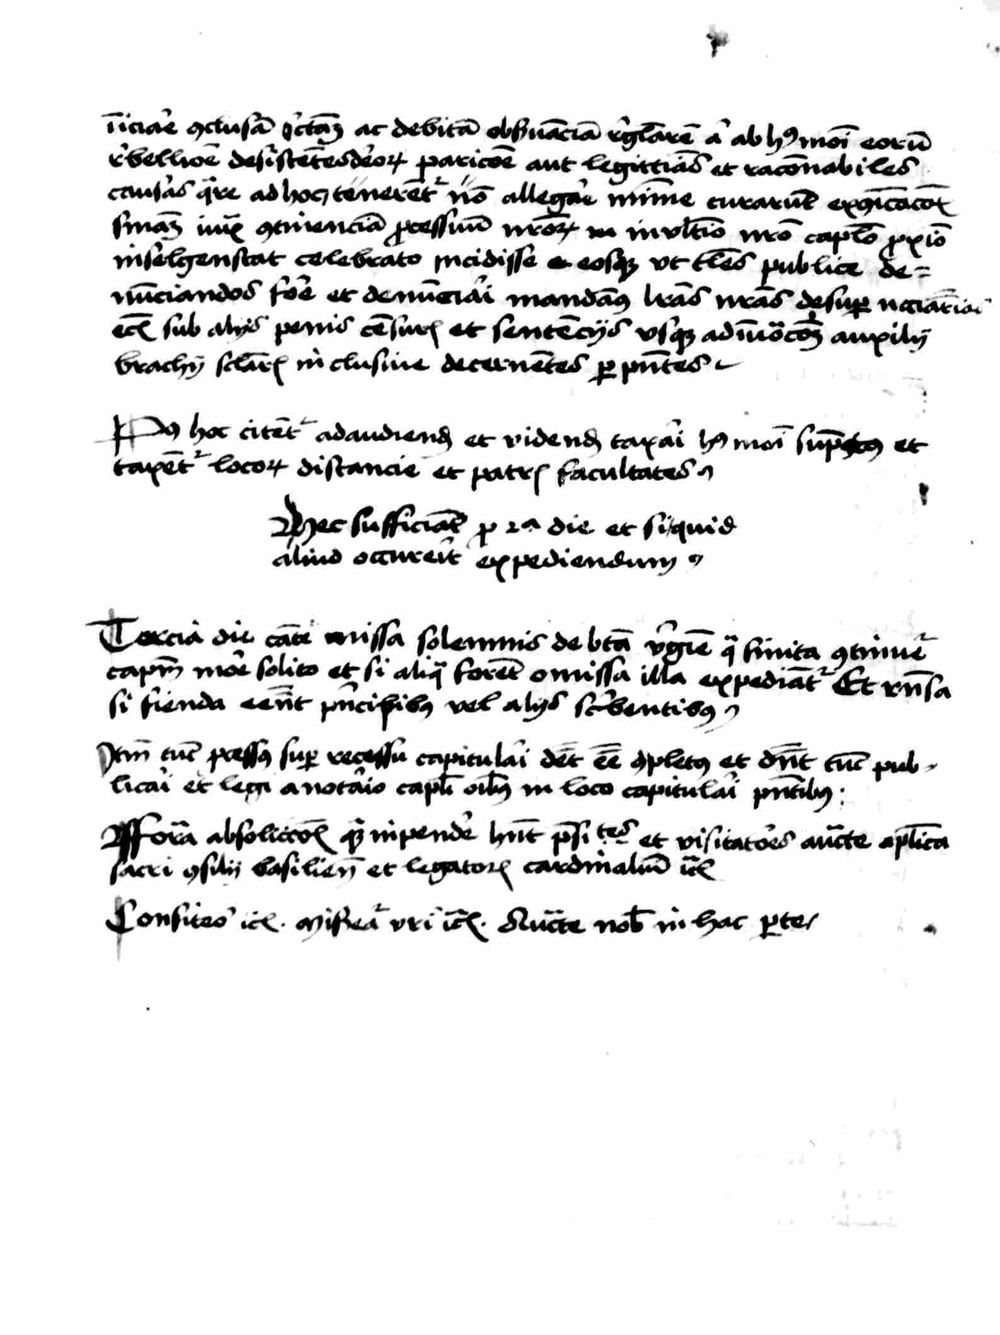 iniciare conclusam quietam ac debitam observanciam regularem aut ab huiusmodi eorum
rebellione desistentes deorum paricione aut legittimas et racionabiles
causas quare ad hoc tenerentur non allegare minime curarunt excommunicacionis
sentenciam iuxta continenciam processuum nostrorum in ultimo nostro capitulo proximo
in selgenstat celebrato incidisse eosque ut tales publice de=
nunciandos fore et denunciari mandamus literas nostras desuper
etc sub aliis penis censuris et sentenciis usque ad invocacionem auxilii
brachii secularis inclusive decernentes per presentes
Post hoc citentur ad audiendum et videndum taxari huiusmodi sumptus et
taxentur locorum distancie et patrum facultates
Hec sufficiant pro 2a die et si quid
aliud occurrerit expediendum
Tercia die cantetur missa solemnis de beata virgine qua finita continuetur
capitulum more solito et si aliqua forent omissa illa expediantur Et responsa
si fienda essent principibus vel aliis scribentibus
Item tunc processus super recessu capitulari debet esse completus et debent tunc pub-
licari et legi a notario capituli omnibus in loco capitulari presentibus :
Forma absolucionis quam inpendere habent presidentes et visitatores auctoritate apostolica
sacri consilii basiliensis et legatorum cardinalium etc
Confiteor etc. Misereatur vestri etc. Auctoritate nobis in hac parte